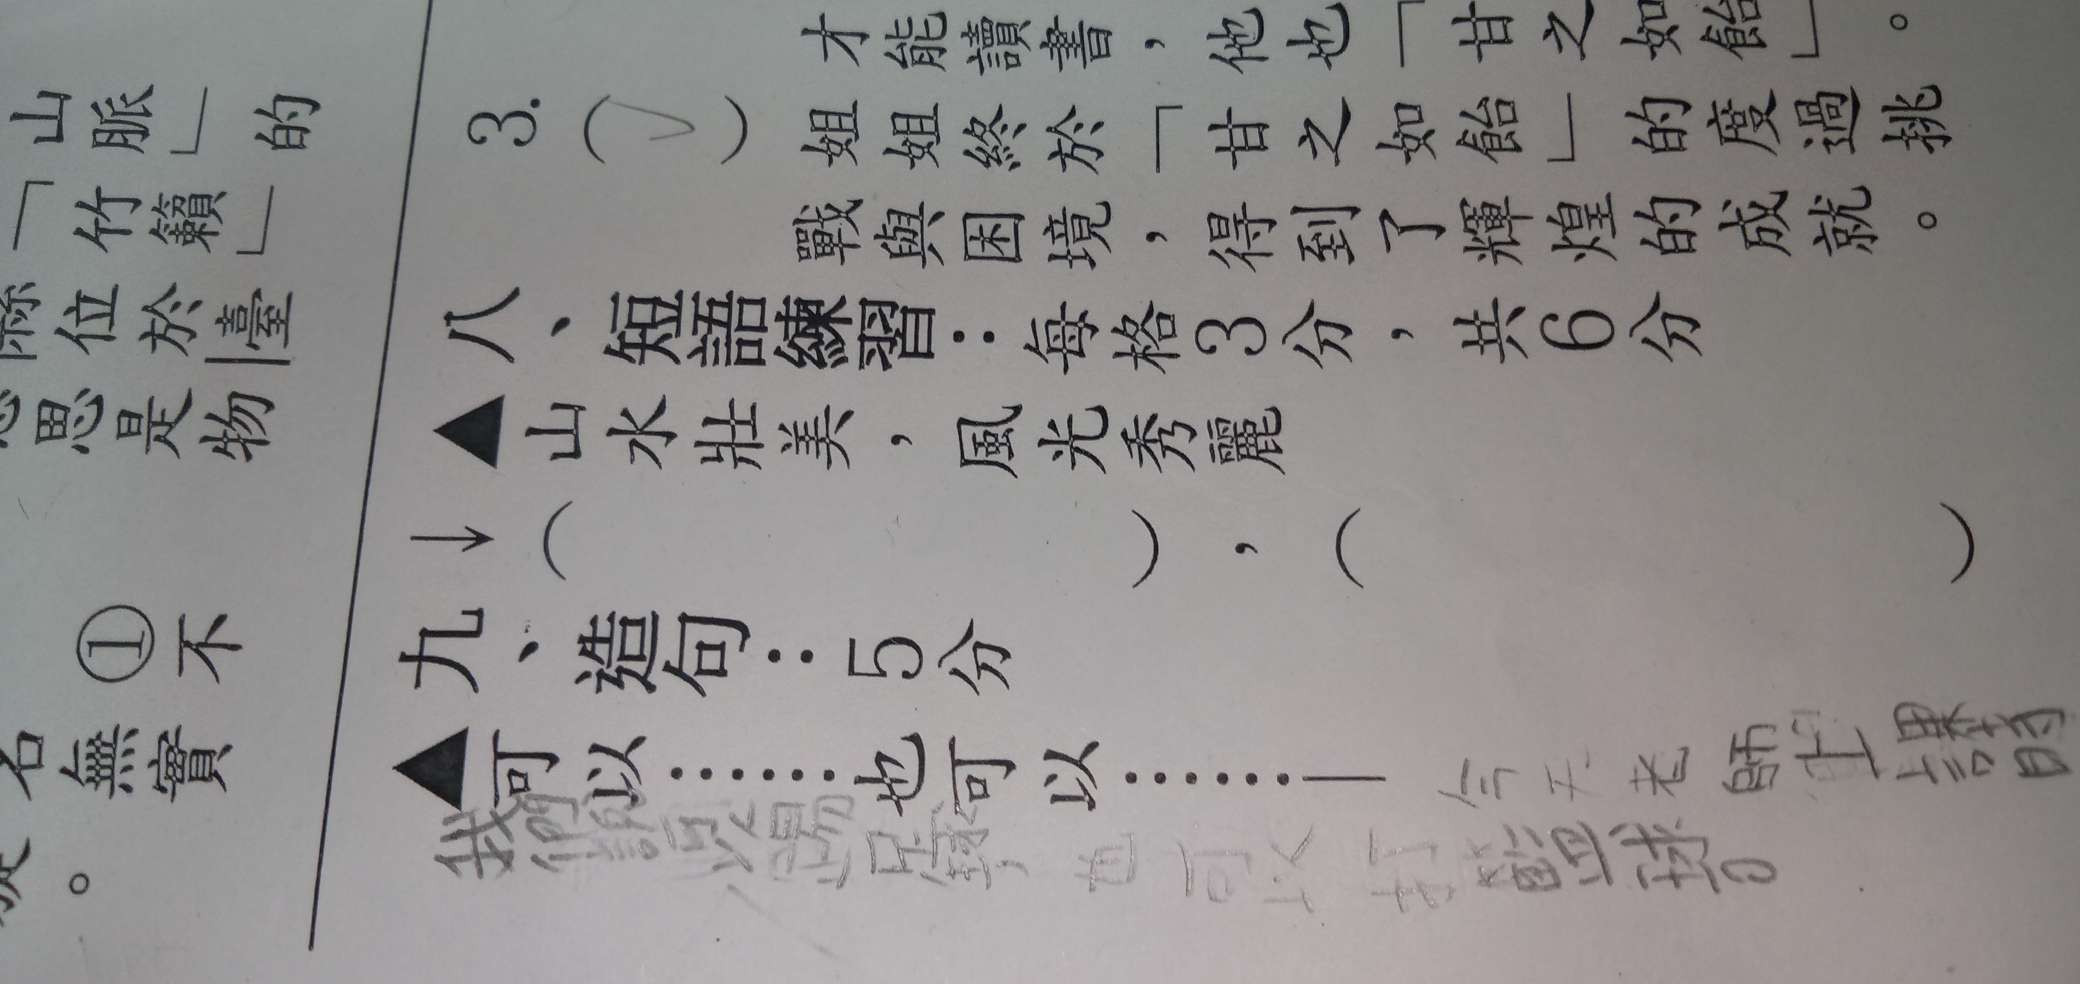 山脈」的
「竹籟」
位於臺
思是物
①不
名無實
。
才能讀書，他也「甘之如飴」。
3.（✓）姐姐終於「甘之如飴」的度過挑
戰與困境，得到了輝煌的成就。
八、短語練習：每格3分，共6分
▲山水壯美，風光秀麗
→（　　　），（　　　）
九、造句：5分
▲可以……也可以……— 今天老師上課時
我們可以踢足球，也可以打籃球。